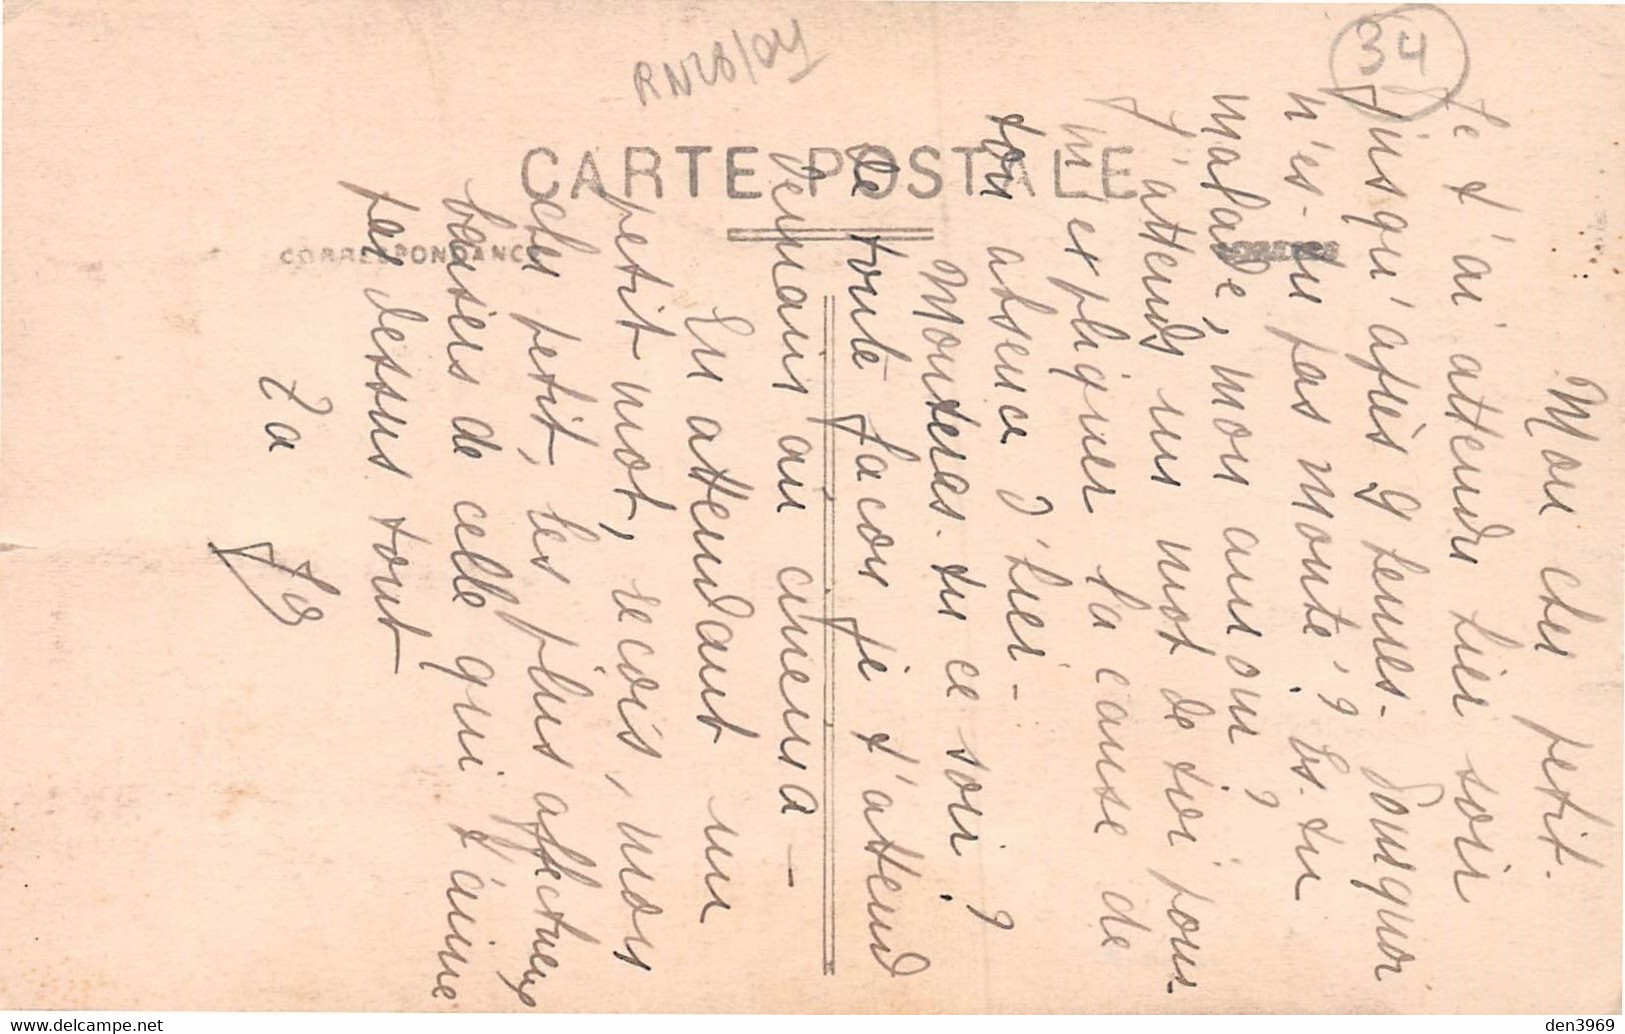 RN28/04
34
CARTE POSTALE
CORRESPONDANCE
ADRESSE
Mon cher petit.
Je t'ai attendu hier soir
jusqu'après 9 heures. Pourquoi
n'es-tu pas monté? Es-tu
malade, mon amour?
J'attends un mot de toi pour
m'expliquer la cause de
ton absence d'hier -
Monteras-tu ce soir?
de toute façon je t'attend
demain au cinéma -
En attendant un
petit mot, reçois, mon
cher petit, les plus affectueux
baisers de celle qui t'aime
par dessus tout
Ta
den3969